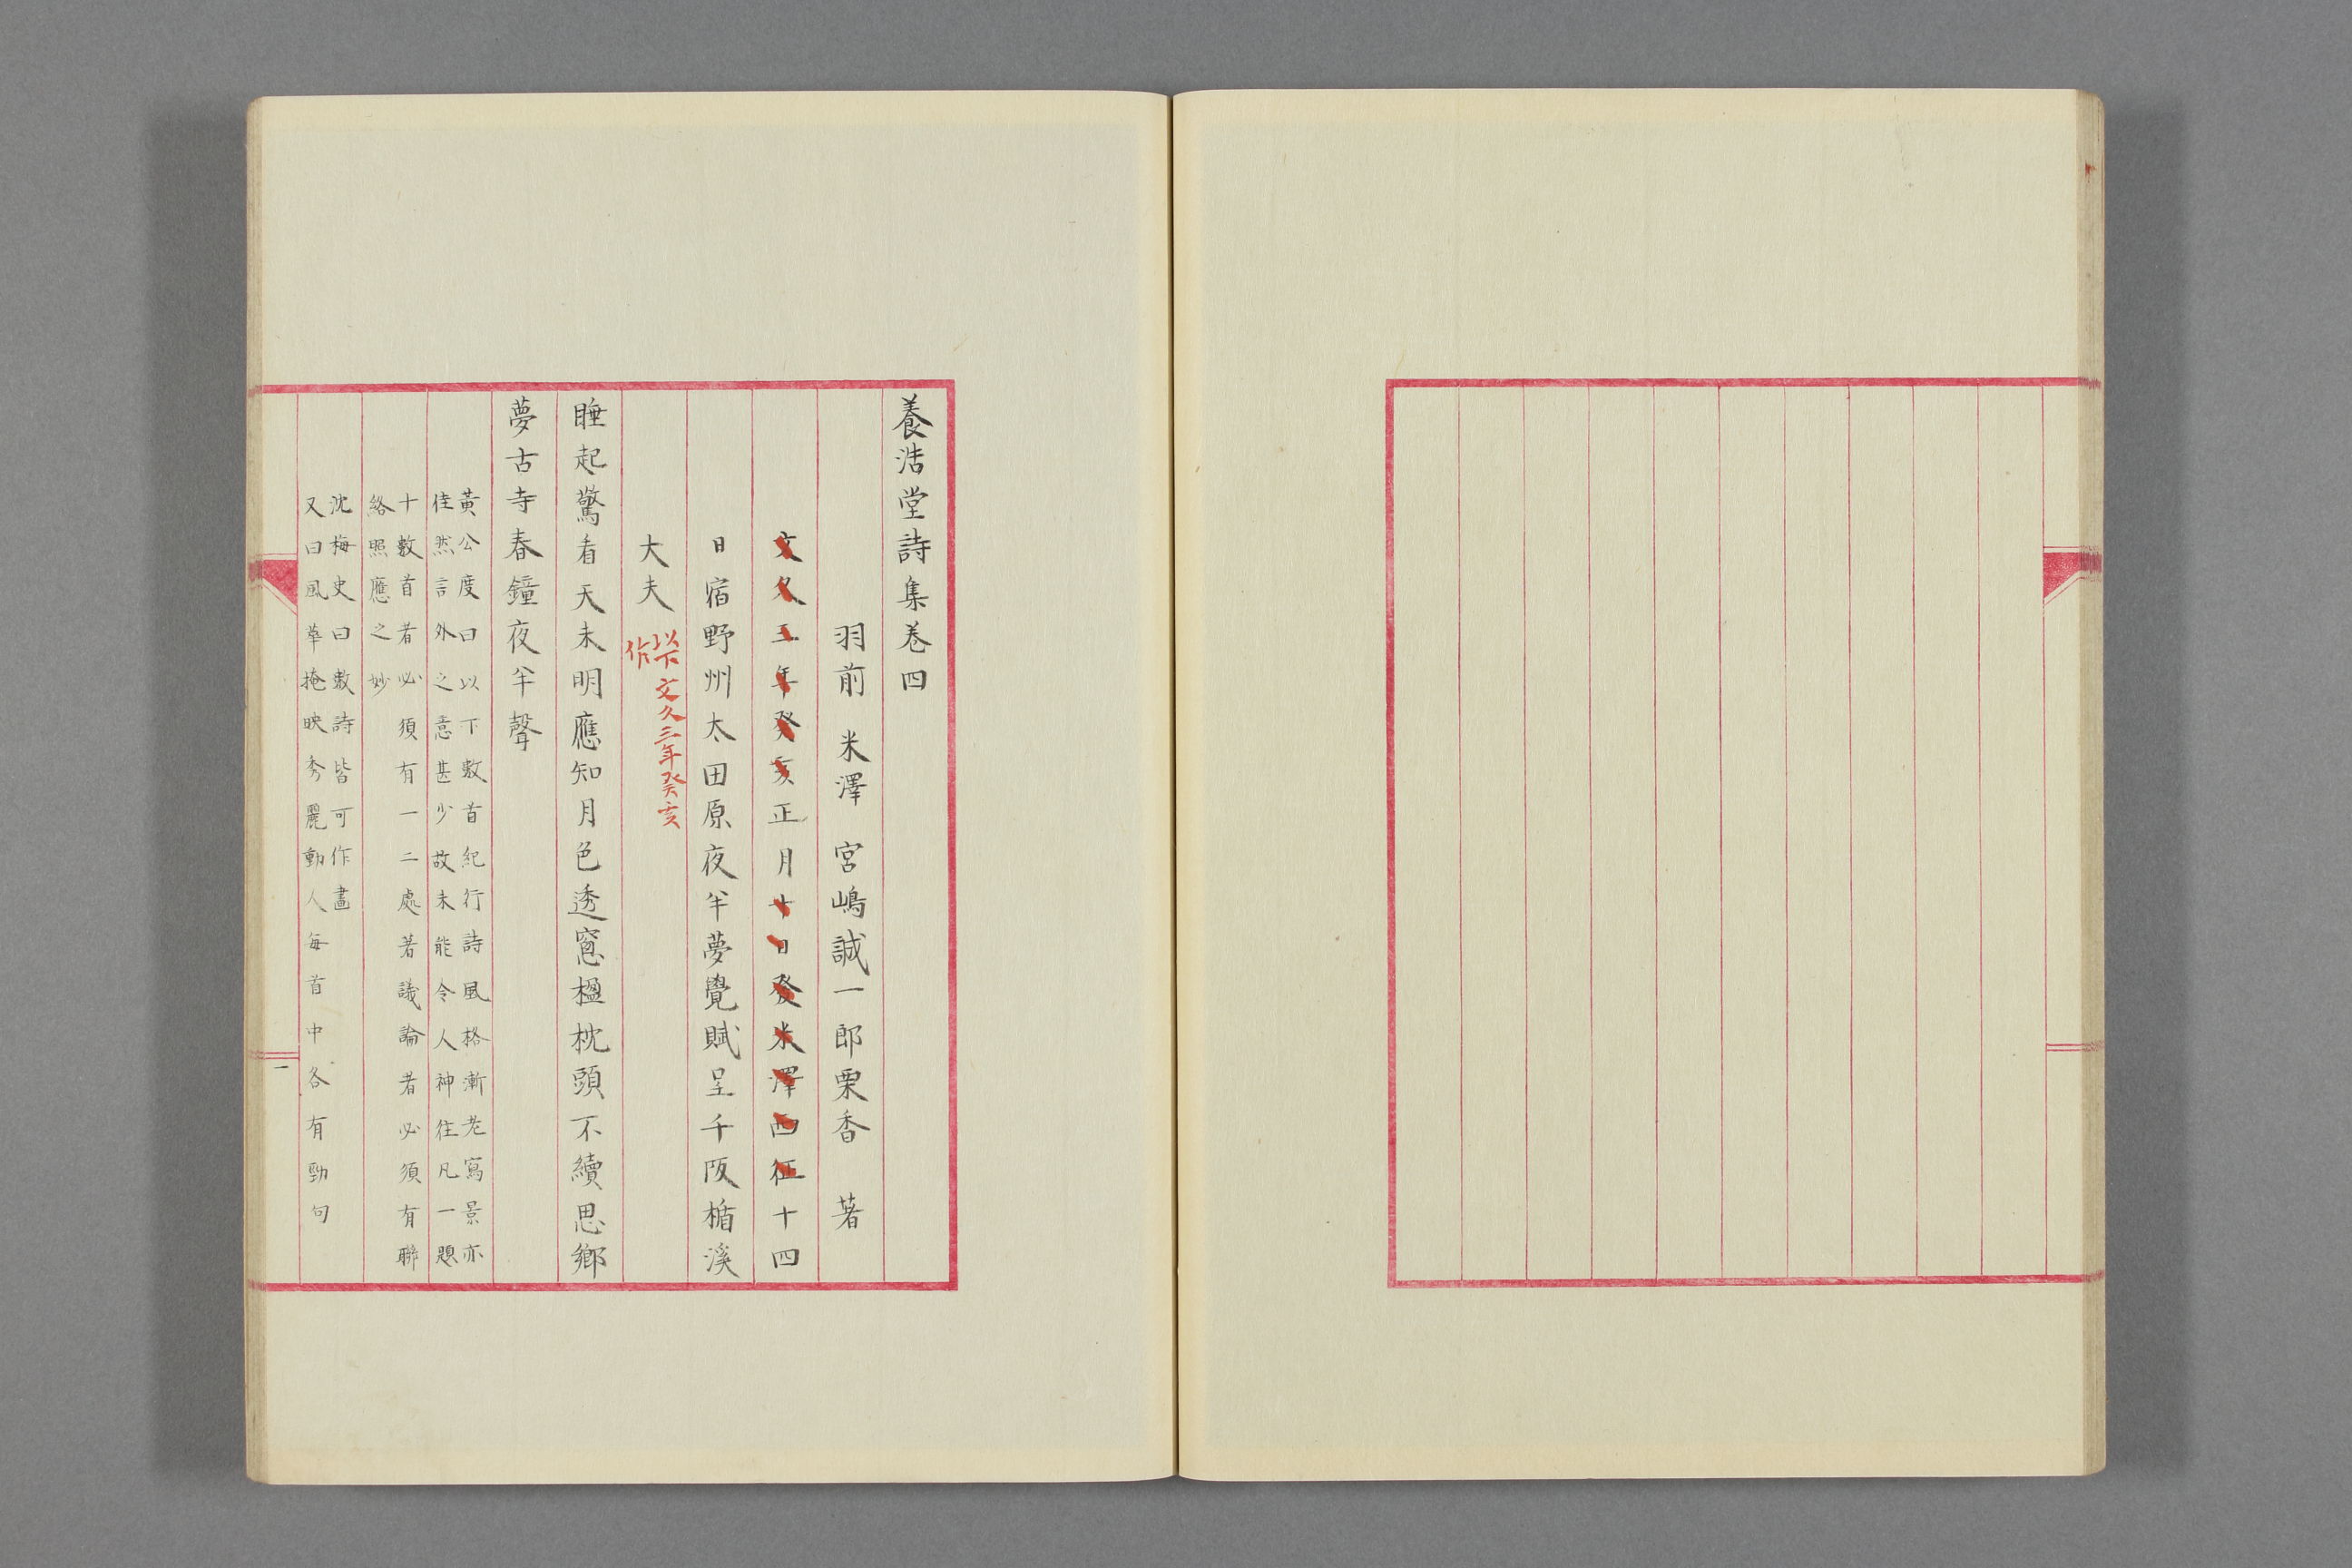 養浩堂詩集卷四
羽前 米澤 宮嶋誠一郎栗香 著
文久三年癸亥正月十日發米澤西征十四
日宿野州太田原夜半夢覺賦呈千阪楯溪
大夫
以下文久三年癸亥
作
睡起驚看天未明應知月色透窻楹枕頭不續思鄉
夢古寺春鐘夜半聲
黃公度曰以下數首紀行詩風格漸老寫景亦
佳然言外之意甚少故未能令人神往凡一題
十數首者必須有一二處著議論者必須有聯
絡照應之妙
沈梅史曰數詩皆可作畫
又曰風華掩映秀麗動人每首中各有勁句
一